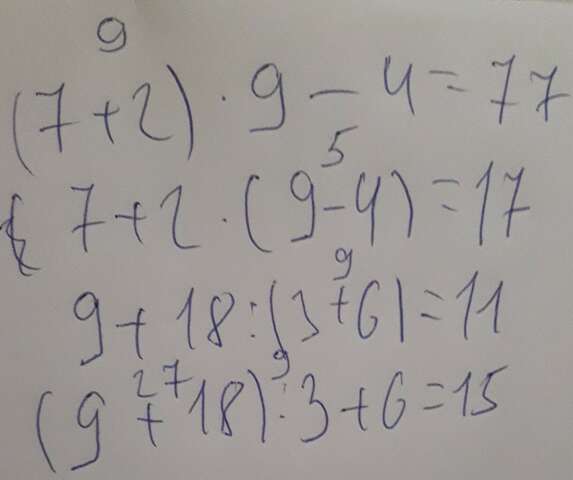 9
(7+2) · 9 - 4 = 77
5
7+2 · (9-4) = 17
9
9 + 18 : (3+6) = 11
27 9
(9+18) : 3 + 6 = 15